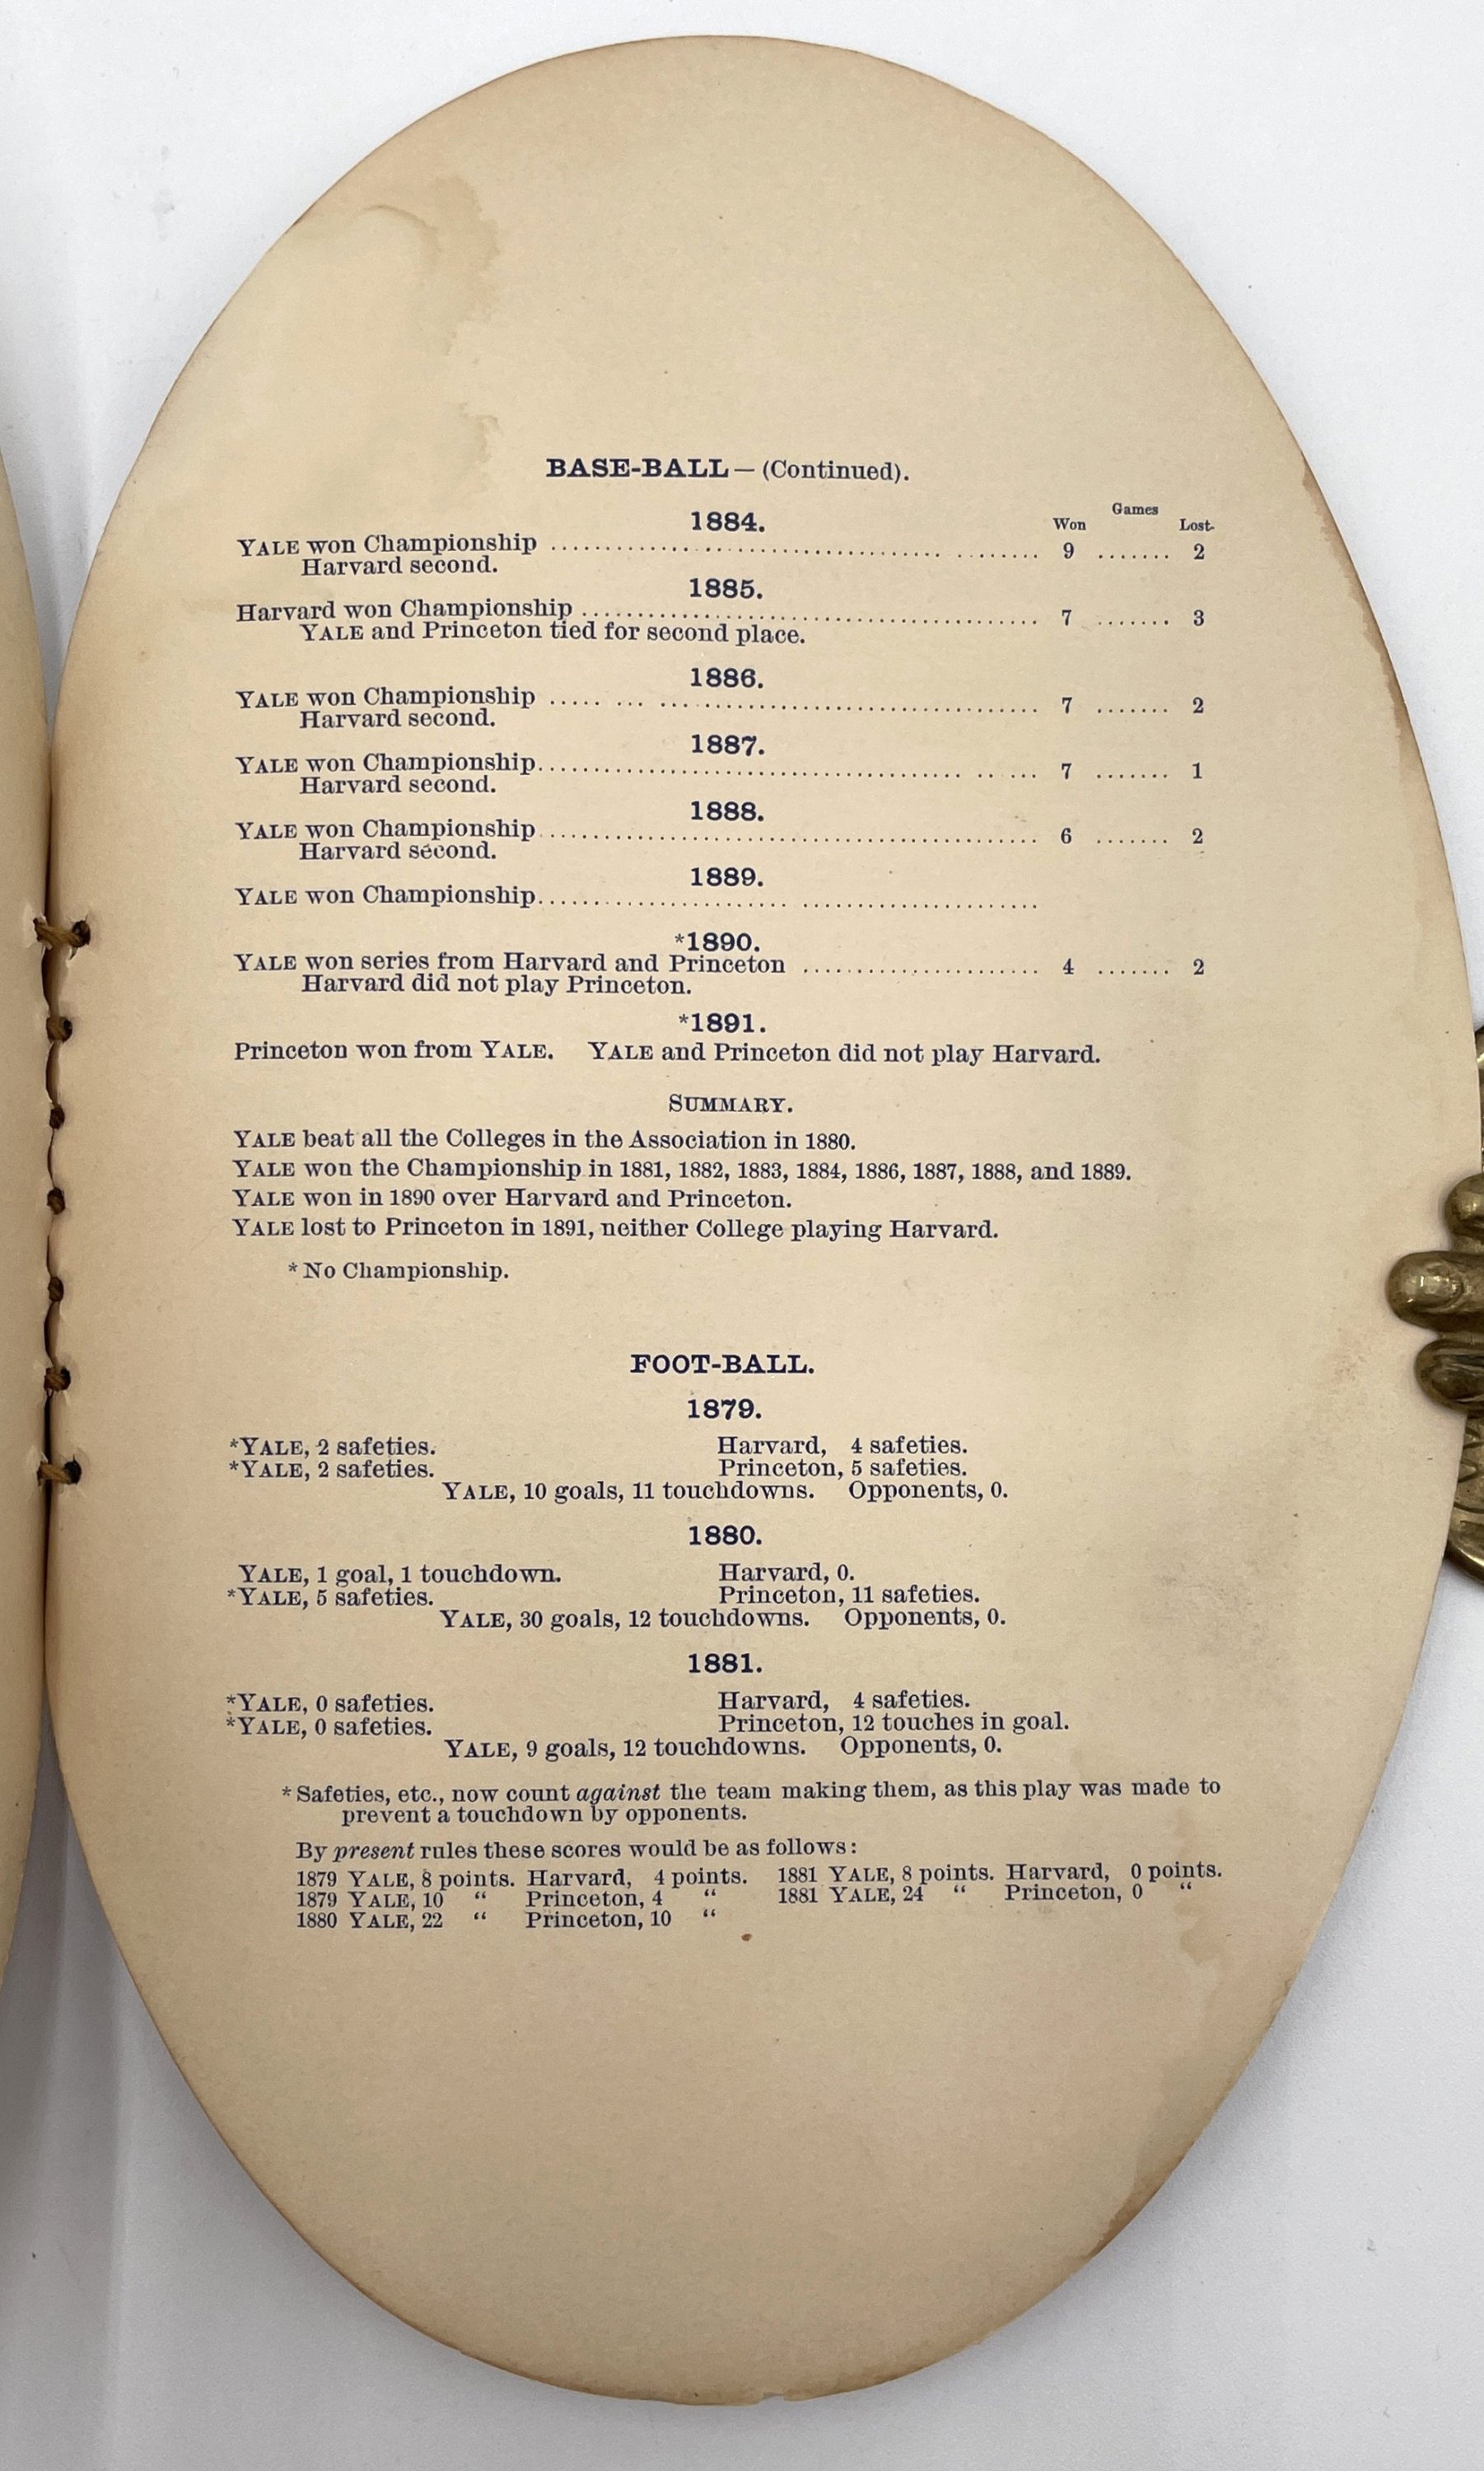 BASE-BALL — (Continued).
Games
1884. Won Lost.
YALE won Championship ........ 9 ....... 2
Harvard second.
1885.
Harvard won Championship ........ 7 ....... 3
YALE and Princeton tied for second place.
1886.
YALE won Championship ........ 7 ....... 2
Harvard second.
1887.
YALE won Championship ........ 7 ....... 1
Harvard second.
1888.
YALE won Championship ........ 6 ....... 2
Harvard second.
1889.
YALE won Championship ........
*1890.
YALE won series from Harvard and Princeton ........ 4 ....... 2
Harvard did not play Princeton.
*1891.
Princeton won from YALE. YALE and Princeton did not play Harvard.
SUMMARY.
YALE beat all the Colleges in the Association in 1880.
YALE won the Championship in 1881, 1882, 1883, 1884, 1886, 1887, 1888, and 1889.
YALE won in 1890 over Harvard and Princeton.
YALE lost to Princeton in 1891, neither College playing Harvard.
* No Championship.
FOOT-BALL.
1879.
*YALE, 2 safeties. Harvard, 4 safeties.
*YALE, 2 safeties. Princeton, 5 safeties.
YALE, 10 goals, 11 touchdowns. Opponents, 0.
1880.
YALE, 1 goal, 1 touchdown. Harvard, 0.
*YALE, 5 safeties. Princeton, 11 safeties.
YALE, 30 goals, 12 touchdowns. Opponents, 0.
1881.
*YALE, 0 safeties. Harvard, 4 safeties.
*YALE, 0 safeties. Princeton, 12 touches in goal.
YALE, 9 goals, 12 touchdowns. Opponents, 0.
* Safeties, etc., now count against the team making them, as this play was made to
prevent a touchdown by opponents.
By present rules these scores would be as follows:
1879 YALE, 8 points. Harvard, 4 points. 1881 YALE, 8 points. Harvard, 0 points.
1879 YALE, 10 “ Princeton, 4 “ 1881 YALE, 24 “ Princeton, 0 “
1880 YALE, 22 “ Princeton, 10 “